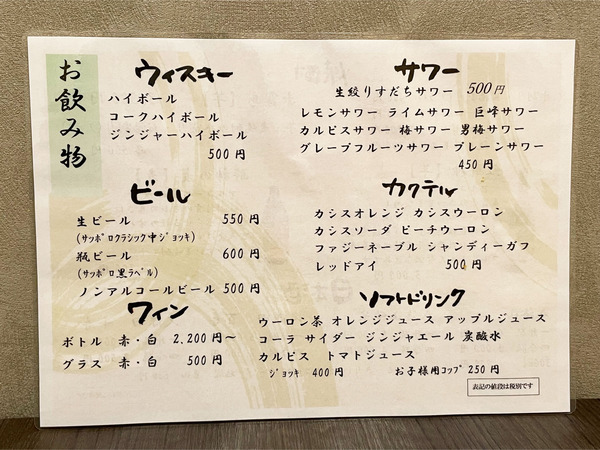 お飲み物
ウィスキー
ハイボール
コークハイボール
ジンジャーハイボール
500 円
ビール
生ビール 550 円
(サッポロクラシック中ジョッキ)
瓶ビール 600 円
(サッポロ黒ラベル)
ノンアルコールビール 500 円
ワイン
ボトル 赤・白 2,200 円～
グラス 赤・白 500 円
サワー
生絞りすだちサワー 500 円
レモンサワー ライムサワー 巨峰サワー
カルピスサワー 梅サワー 男梅サワー
グレープフルーツサワー プレーンサワー
450 円
カクテル
カシスオレンジ カシスウーロン
カシスソーダ ピーチウーロン
ファジーネーブル シャンディーガフ
レッドアイ 500 円
ソフトドリンク
ウーロン茶 オレンジジュース アップルジュース
コーラ サイダー ジンジャエール 炭酸水
カルピス トマトジュース
ジョッキ 400 円 お子様用コップ 250 円
表記の値段は税別です